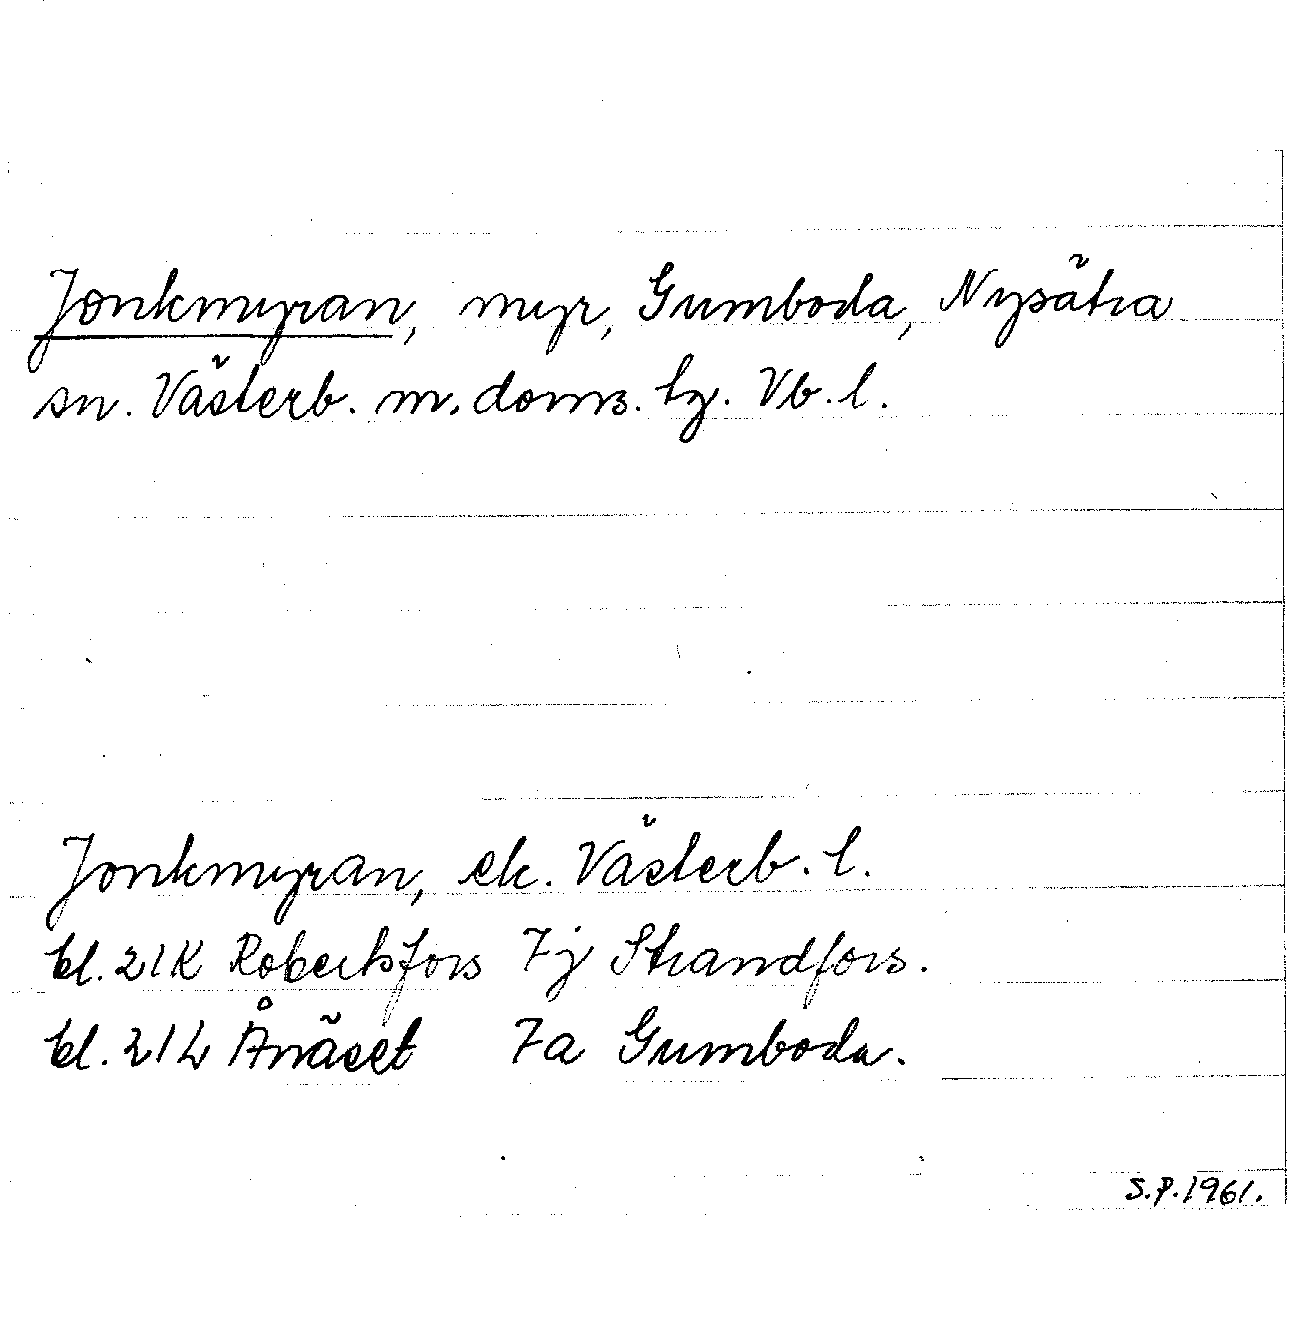 Jonkmyran, myr, Gumboda, Nysätra
sn. Västerb. m. doms. tg. Vb. l.
Jonkmyran, ek. Västerb. l.
bl. 21K Robertsfors 7j Strandfors.
bl. 21L Ånäset 7a Gumboda.
S.P. 1961.